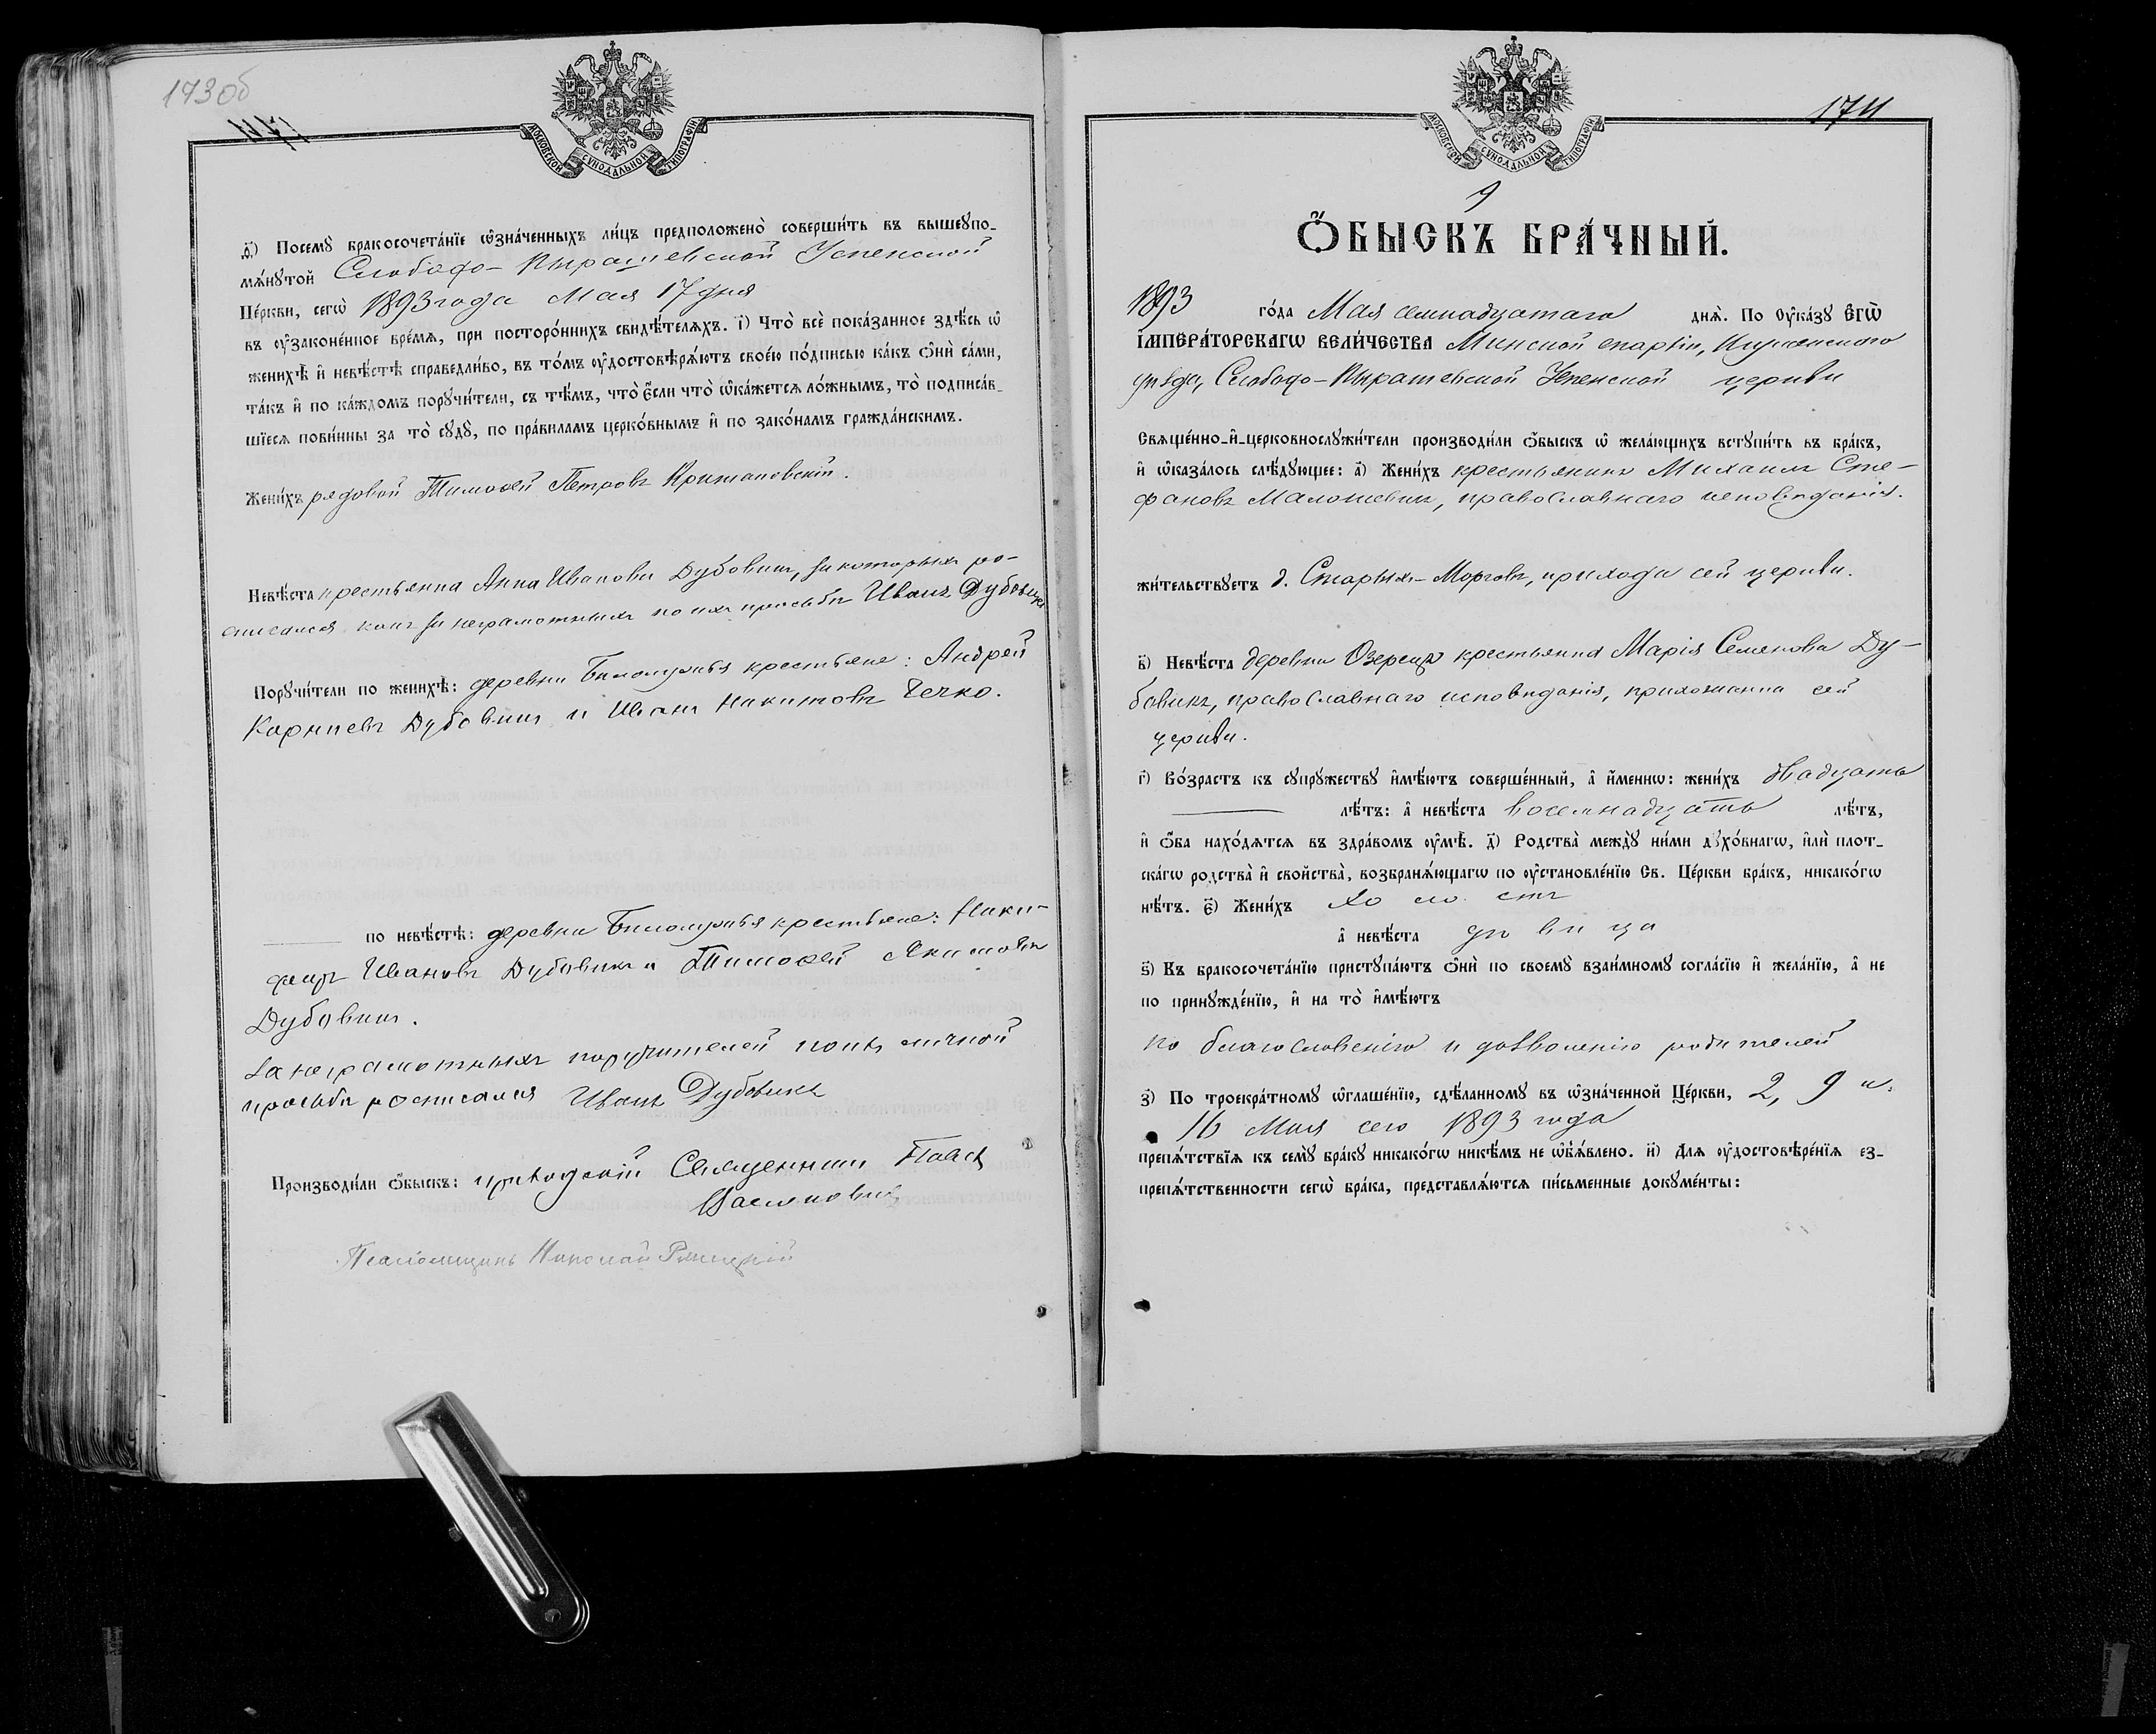 173 об
174
МОСКОВСКОЙ СѴНОДАЛЬНОЙ ТИПОГРАФІИ
ѳ҃) Посемꙋ̀ бракосочета́нїе ѡ҆зна́ченныхъ ли́цъ предположено̀ соверши́ть въ вышеꙋпо-
мѧ́нꙋтой Слободо-Пырашевской Успенской
Це́ркви, сегѡ̀ 1893 года Мая 17 дня
въ ᲂу҆законе́нное вре́мѧ, при посторо́ннихъ свидѣ́телѧхъ. і҃) Что̀ всѐ пока́занное здѣ́сь ѡ҆
женихѣ̀ и҆ невѣ́стѣ справедли́во, въ то́мъ ᲂу҆достовѣрѧ́ютъ свое́ю по́дписью ка́къ ѻ҆нѝ са́ми,
та́къ и҆ по ка́ждомъ порꙋчи́тели, съ тѣ́мъ, что̀ є҆́сли что̀ ѡ҆ка́жетсѧ ло́жнымъ, то̀ подписа́в-
шїесѧ пови́нны за то̀ сꙋдꙋ̀, по пра́виламъ церко́внымъ и҆ по зако́намъ гражда́нскимъ.
Жени́хъ рядовой Тимофей Петровъ Крижановскій.
Невѣ́ста крестьянка Анна Иванова Дубовикъ, за которыхъ ро-
списался какъ за неграмотныхъ по ихъ просьбѣ Иванъ Дубовикъ
Порꙋчи́тели по женихѣ̀: деревни крестьяне: Андрей
Карниевъ Дубовикъ и Иванъ Никитовъ Чечко.
по невѣ́стѣ: деревни крестьяне: Ники-
форъ Ивановъ Дубовикъ и Тимофей Якимовъ
Дубовикъ.
За неграмотныхъ поручителей по ихъ личной
просьбѣ росписался Иванъ Дубовикъ
Производи́ли ѻ҆́быскъ: приходскій Священникъ Павел
Псаломщикъ Николай
174
МОСКОВСКОЙ СѴНОДАЛЬНОЙ ТИПОГРАФІИ
9
Ѻ҆́БЫСКЪ БРА́ЧНЫЙ.
1893 го́да Мая семнадцатаго днѧ̀. По Оу҆ка́зꙋ Є҆гѡ̀
І҆мпера́торскагѡ Вели́чества Минской епархіи, Игуменскаго
уѣзда, Слободо-Пырашевской Успенской церкви
Свѧще́нно-и҆-церковнослꙋжи́тели производи́ли ѻ҆́быскъ ѡ҆ жела́ющихъ встꙋпи́ть въ бра́къ,
и҆ ѡ҆каза́лось слѣ́дꙋющее: а҃) Жени́хъ крестьянинъ Михаилъ Сте-
фановъ Малошевикъ, православнаго исповѣданія.
жи́тельствꙋетъ д. Старыхъ-Морговъ, прихода сей церкви.
в҃) Невѣ́ста деревни Озерецъ крестьянка Марія Семенова Ду-
бовикъ, православнаго исповѣданія, прихожанка сей
церкви.
г҃) Во́зрастъ къ сꙋпрꙋ́жествꙋ и҆мѣ́ютъ соверше́нный, а҆ и҆́меннѡ: жени́хъ двадцать
лѣ́тъ: а҆ невѣ́ста восемнадцать лѣ́тъ,
и҆ ѻ҆́ба нахо́дѧтсѧ въ здра́вомъ ᲂу҆мѣ̀. д҃) Родства̀ междꙋ̀ ни́ми дꙋхо́внагѡ, и҆лѝ плот-
ска́гѡ родства̀ и҆ свойства̀, возбранѧ́ющагѡ по ᲂу҆становле́нїю Св. Це́ркви бра́къ, никако́гѡ
нѣ́тъ. є҃) Жени́хъ холостъ
а҆ невѣ́ста дѣвица
ѕ҃) Къ бракосочета́нїю пристꙋпа́ютъ ѻ҆нѝ по своемꙋ̀ взаи́мномꙋ согла́сїю и҆ жела́нїю, а҆ не
по принꙋжде́нїю, и҆ на то̀ и҆мѣ́ютъ
по благословенію и дозволенію родителей
з҃) По троекра́тномꙋ ѡ҆глаше́нїю, сдѣ́ланномꙋ въ ѡ҆зна́ченной Це́ркви, 2, 9 и
16 Мая сего 1893 года
препѧ́тствїѧ къ семꙋ̀ бра́кꙋ никако́гѡ никѣ́мъ не ѡ҆б̾ѧ́влено. и҃) Длѧ ᲂу҆достовѣре́нїѧ ез-
препѧ́тственности сегѡ̀ бра́ка, представлѧ́ютсѧ пи́сьменные докꙋме́нты: